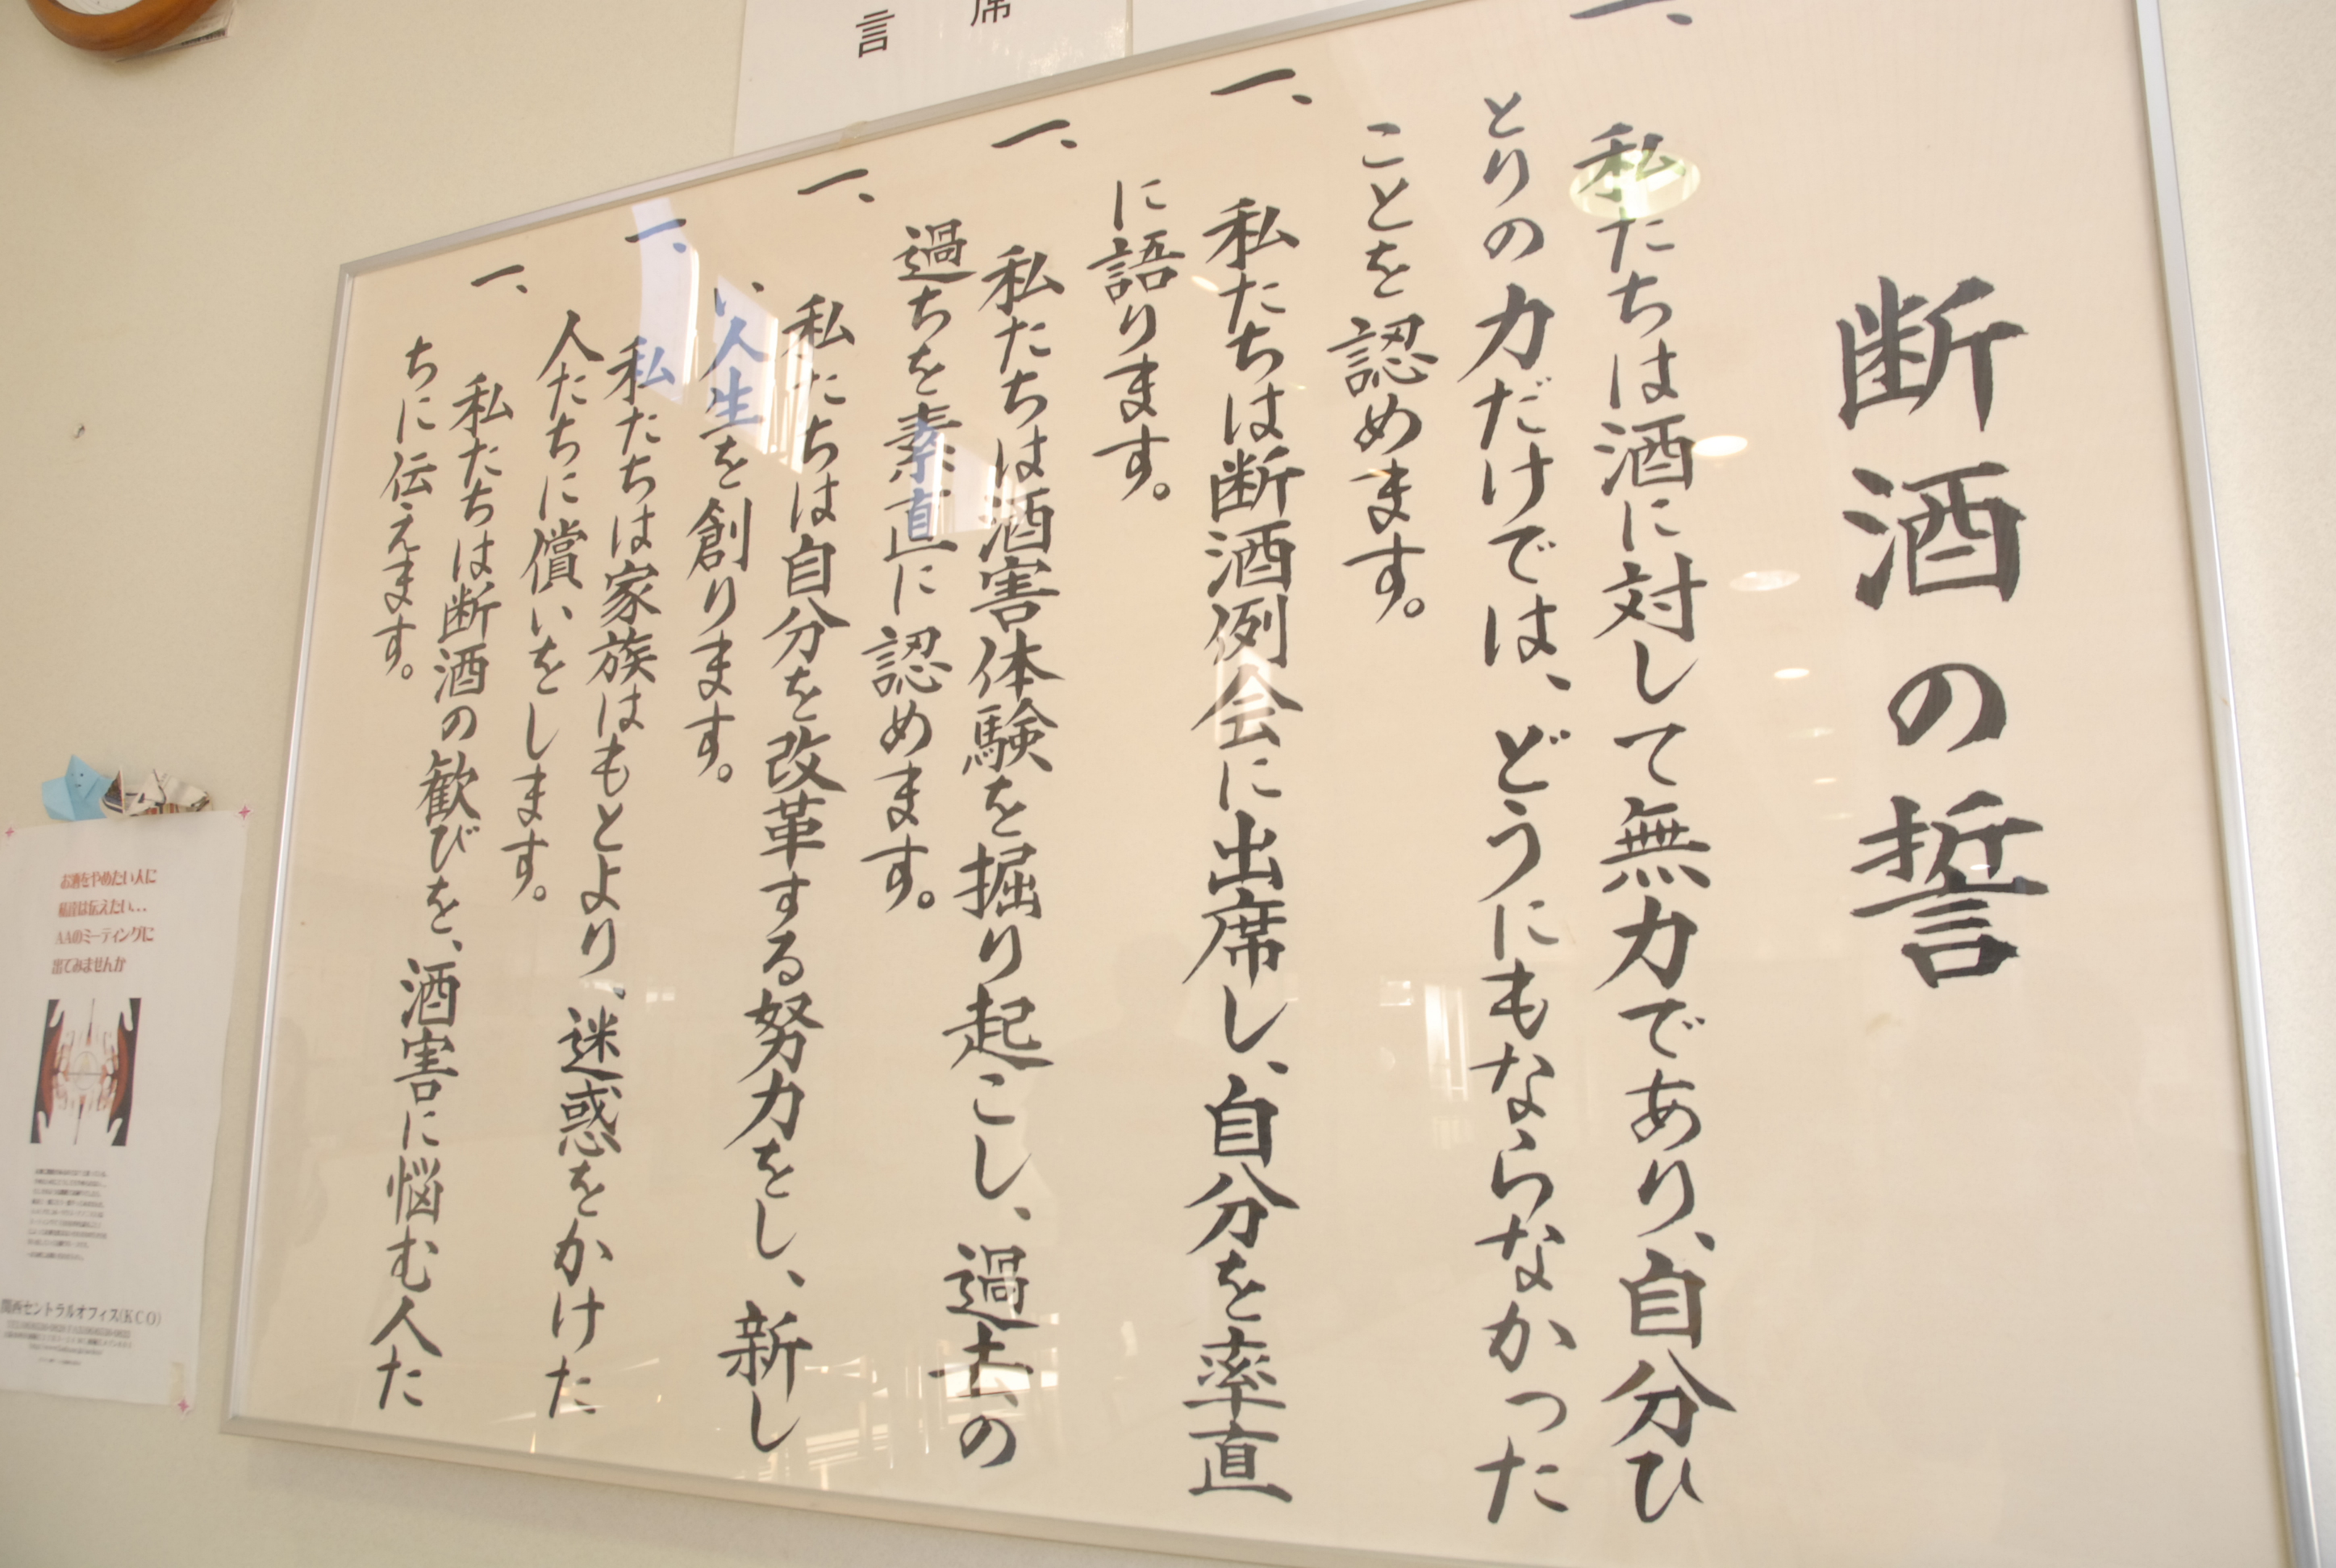 断酒の誓
一、私たちは酒に対して無力であり、自分ひ
とりの力だけでは、どうにもならなかった
ことを認めます。
一、私たちは断酒例会に出席し、自分を率直
に語ります。
一、私たちは酒害体験を掘り起こし、過去の
過ちを素直に認めます。
一、私たちは自分を改革する努力をし、新し
い人生を創ります。
一、私たちは家族はもとより、迷惑をかけた
人たちに償いをします。
一、私たちは断酒の歓びを、酒害に悩む人た
ちに伝えます。
席
言
お酒をやめたい人に
私達は伝えたい...
AAのミーティングに
出てみませんか
関西セントラルオフィス(KCO)